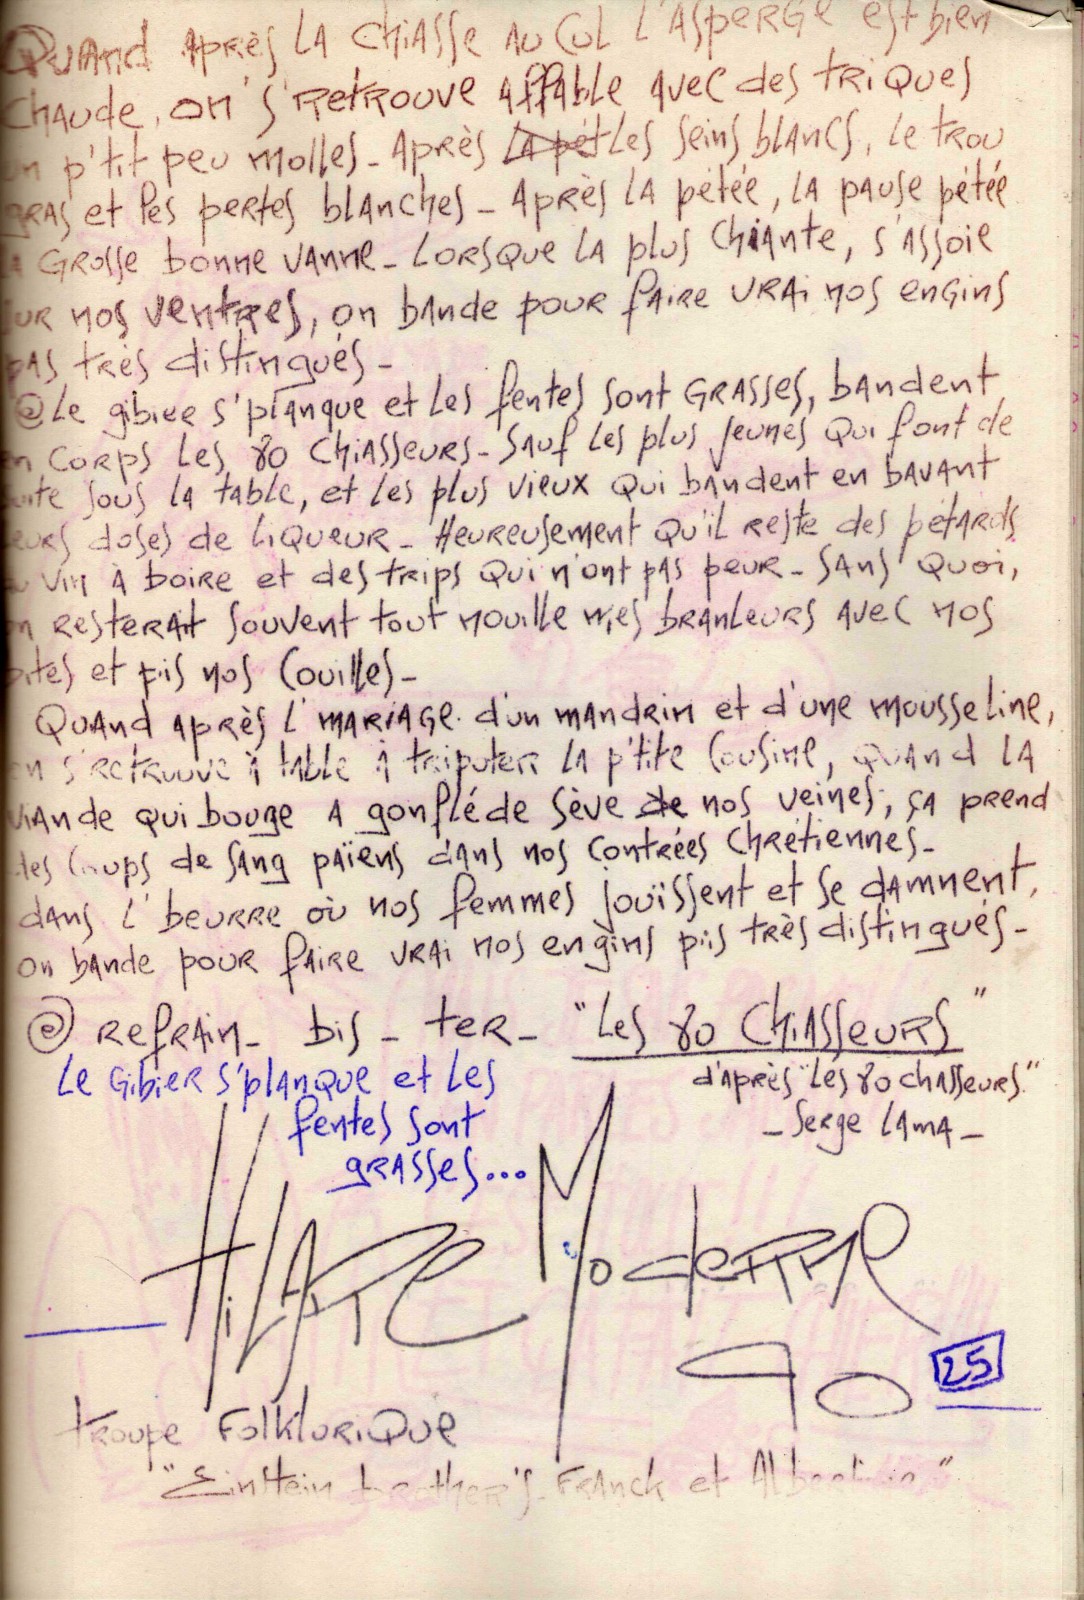 Quand après la chiasse au cul l'asperge est bien
chaude, on s'retrouve affable avec des triques
un p'tit peu molles_ Après la pét les seins blancs, le trou
gras et les pertes blanches_ Après la pétée, la pause pétée
la grosse bonne vanne_ Lorsque la plus chiante, s'assoie
sur nos ventres, on bande pour faire vrai nos engins
pas très distingués_
@ Le gibier s'planque et les fentes sont grasses, bandent
en corps les 80 chiasseurs_ Sauf les plus jeunes qui font de
suite sous la table, et les plus vieux qui bandent en bavant
leurs doses de liqueur_ Heureusement qu'il reste des pétards
du vin à boire et des trips qui n'ont pas peur_ Sans quoi,
on resterait souvent tout nouille mes branleurs avec nos
bites et pis nos couilles_
Quand après l'mariage d'un mandrin et d'une mousseline,
on s'retrouve à table à tripoter la p'tite cousine, quand la
viande qui bouge a gonflé de sève de nos veines, ça prend
des coups de sang païens dans nos contrées chrétiennes_
dans l'beurre où nos femmes jouïssent et se damnent,
on bande pour faire vrai nos engins pis très distingués_
@ refrain_ bis_ ter_ "Les 80 Chiasseurs"
d'après "Les 80 chasseurs"
_ Serge Lama _
Le gibier s'planque et les
fentes sont
grasses...
Hilare Moderne
90
25
troupe Folklorique
"Einstein brother's_ Franck et